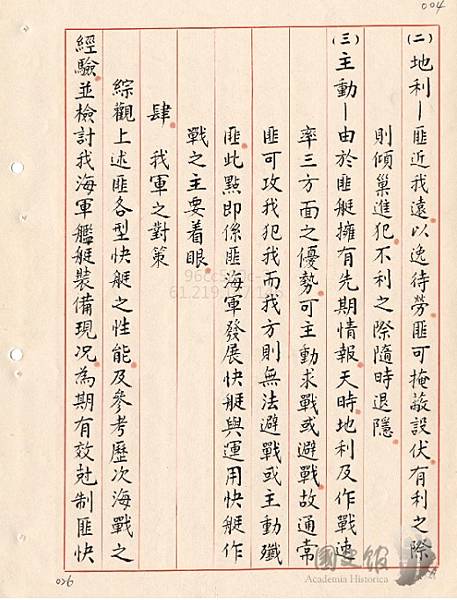 004
(二)地利—匪近我遠以逸待勞匪可掩蔽設伏有利之際
則傾巢進犯不利之際隨時退隱
(三)主動—由於匪艇擁有先期情報天時地利及作戰速
率三方面之優勢可主動求戰或避戰故通常
匪可攻我犯我而我方則無法避戰或主動殲
匪此點即係匪海軍發展快艇與運用快艇作
戰之主要着眼
肆 我軍之對策
綜觀上述匪各型快艇之性能及參考歷次海戰之
經驗並檢討我海軍艦艇裝備現況為期有效尅制匪快
026
國史館
Academia Historica